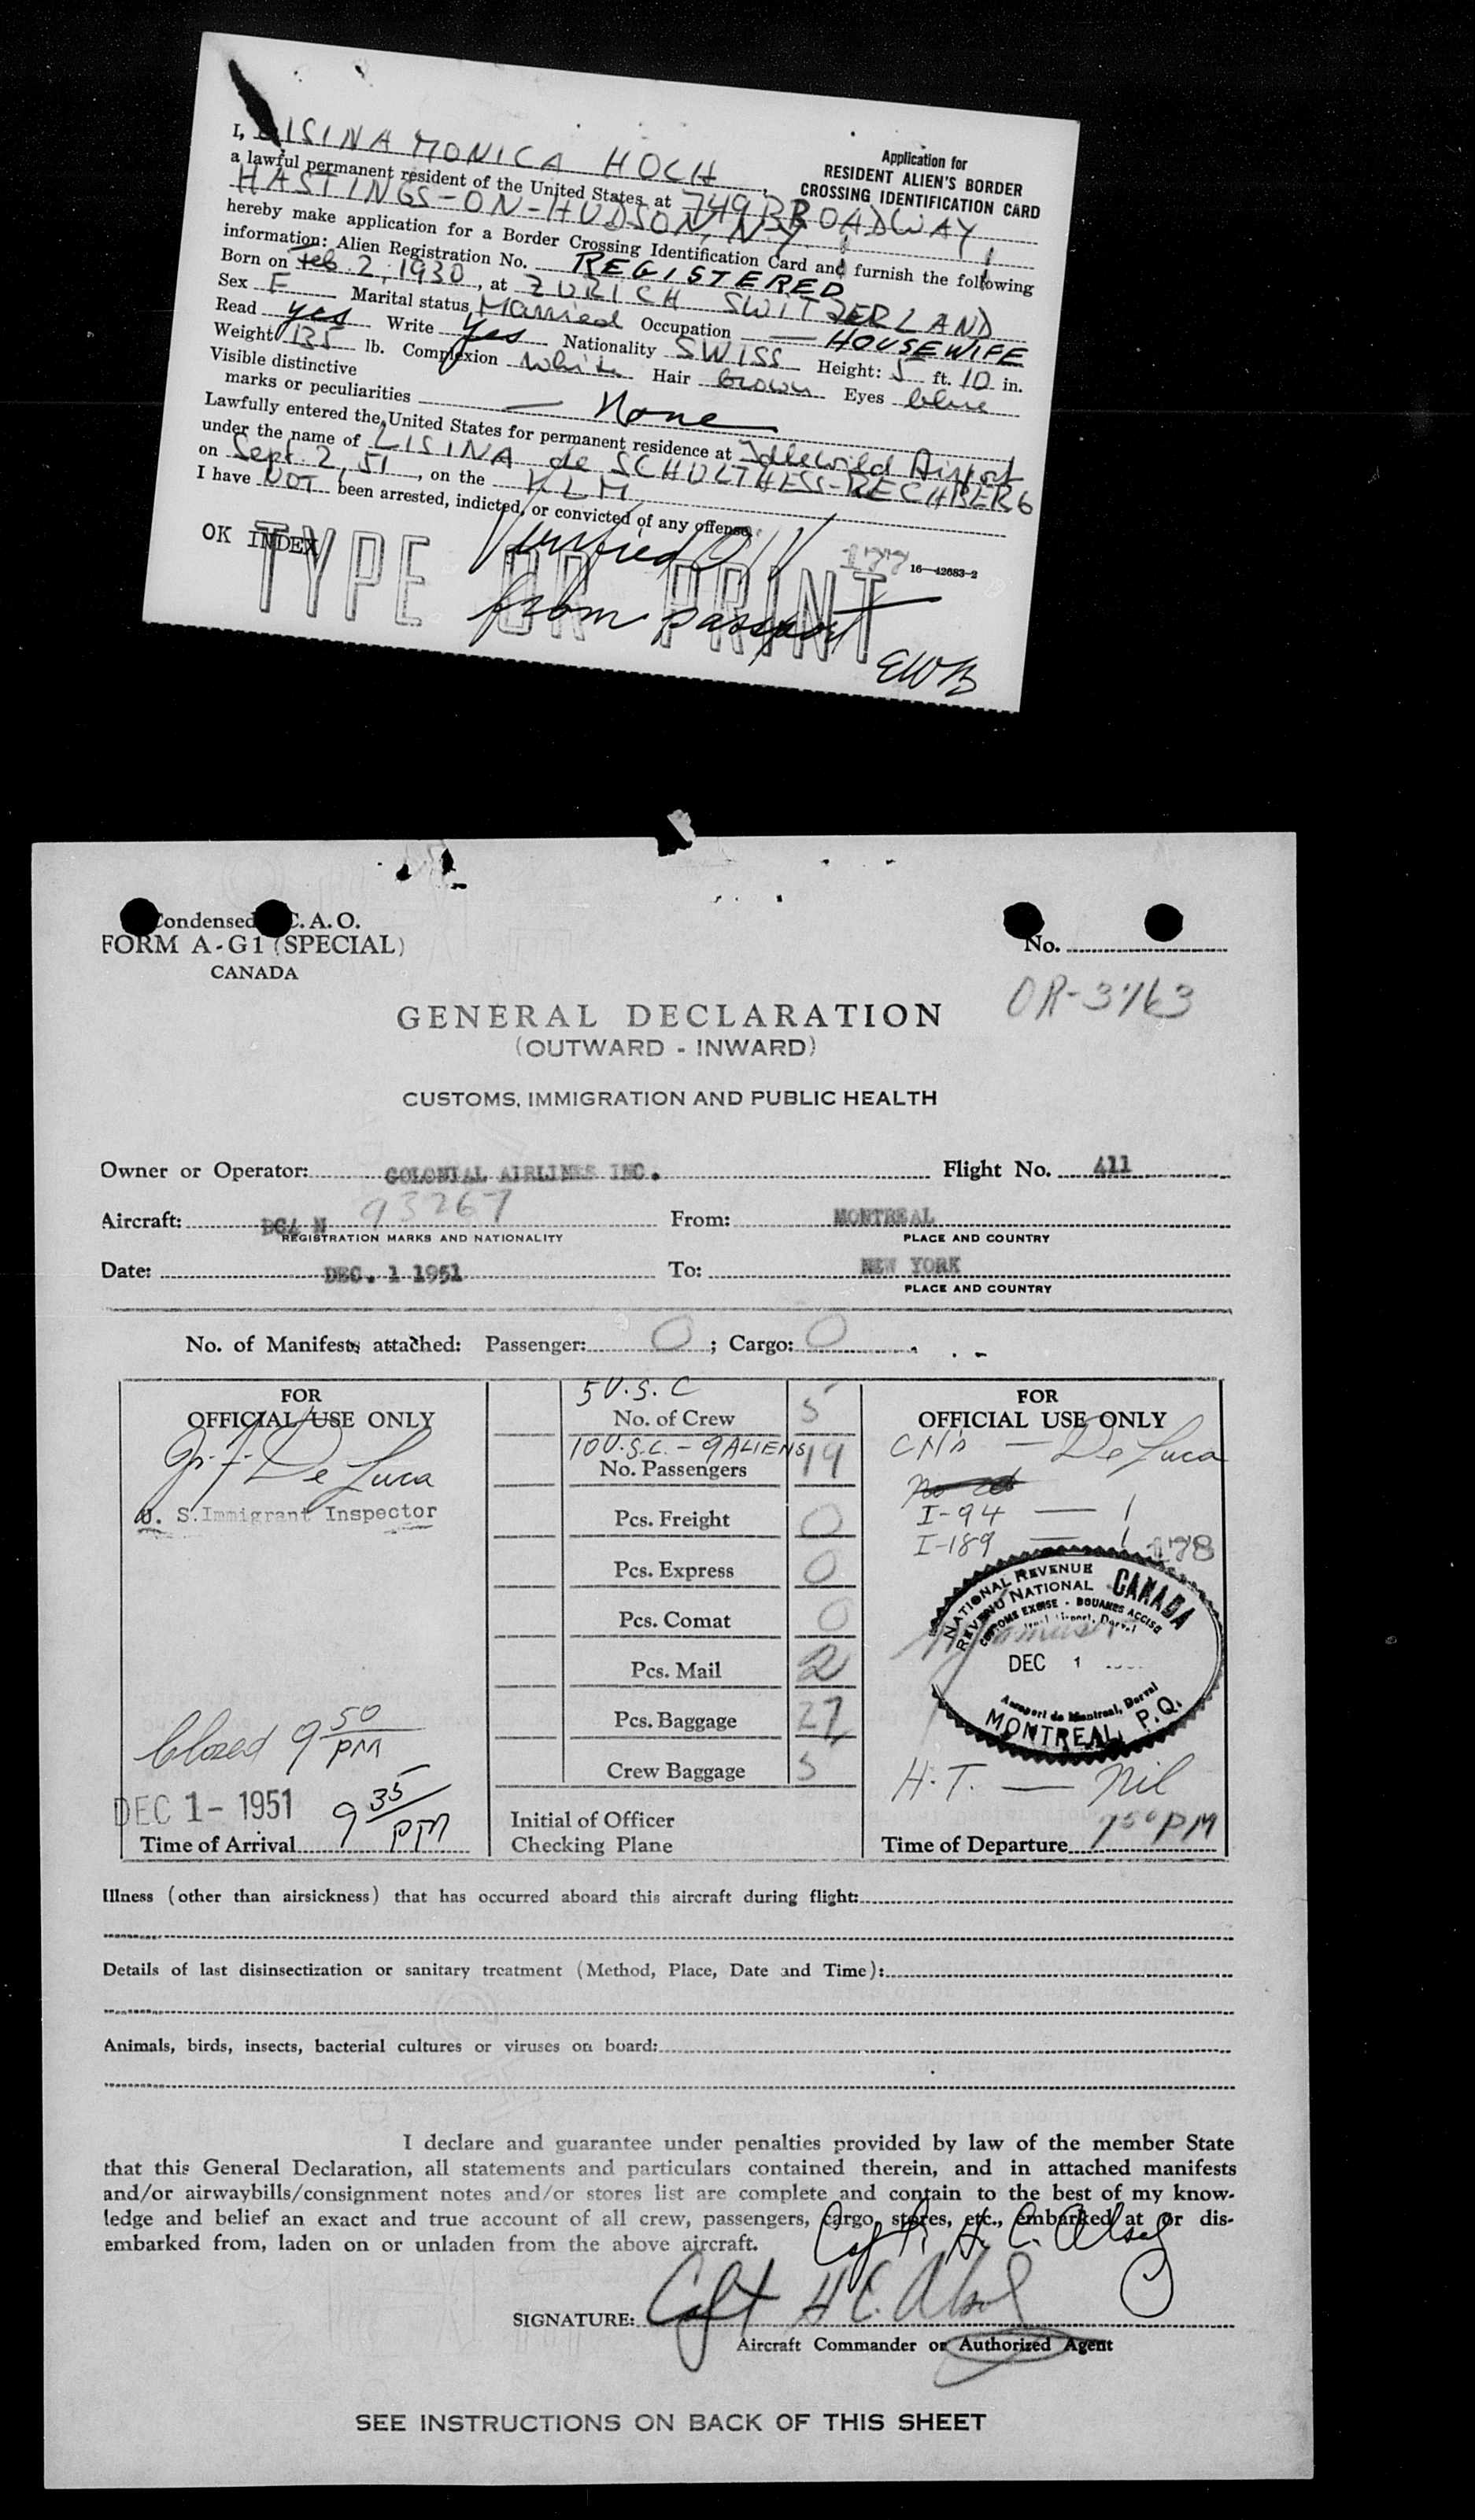 Application for
RESIDENT ALIEN'S BORDER
CROSSING IDENTIFICATION CARD
I, LISINA MONICA HOCH,
a lawful permanent resident of the United States, at 749 BROADWAY,
HASTINGS-ON-HUDSON, N.Y.
hereby make application for a Border Crossing Identification Card and furnish the following
information: Alien Registration No. REGISTERED
Born on Feb. 2, 1930, at ZURICH SWITZERLAND
Sex F Marital status Married Occupation HOUSEWIFE
Read yes Write yes Nationality SWISS Height: 5 ft. 10 in.
Weight 135 lb. Complexion White Hair brown Eyes blue
Visible distinctive
marks or peculiarities — None
Lawfully entered the United States for permanent residence at Idlewild Airport
under the name of LISINA de SCHULTHESS-RECHBERG
on Sept. 2, 51, on the KLM
I have NOT been arrested, indicted, or convicted of any offense.
OK INDEX
TYPE OR PRINT
177 16—42683-2
Verified
from passport
EWB
Condensed C.A.O.
FORM A-G1 (SPECIAL)
CANADA
No.
OR-3763
GENERAL DECLARATION
(OUTWARD - INWARD)
CUSTOMS, IMMIGRATION AND PUBLIC HEALTH
Owner or Operator: COLONIAL AIRLINES INC. Flight No. 411
Aircraft: DC4 N 93267 From: MONTREAL
REGISTRATION MARKS AND NATIONALITY PLACE AND COUNTRY
Date: DEC. 1 1951 To: NEW YORK
PLACE AND COUNTRY
No. of Manifests attached: Passenger: 0; Cargo: 0
FOR
OFFICIAL USE ONLY
De Luca
U. S. Immigrant Inspector
Closed 9 50 PM
DEC 1- 1951 9 35 PM
Time of Arrival
5 U.S.C
No. of Crew 5
10 U.S.C. - 9 ALIENS
No. Passengers 19
Pcs. Freight 0
Pcs. Express 0
Pcs. Comat 0
Pcs. Mail 2
Pcs. Baggage 27
Crew Baggage 5
Initial of Officer
Checking Plane
FOR
OFFICIAL USE ONLY
— De Luca
I-94 — 1
I-189 — 1
178
NATIONAL REVENUE
REVENU NATIONAL
CANADA
CUSTOMS EXCISE - DOUANES ACCISE
DEC 1
Aeroport de Montreal, Dorval
MONTREAL, P.Q.
H.T. — Nil
Time of Departure 7 50 PM
Illness (other than airsickness) that has occurred aboard this aircraft during flight:
Details of last disinsectization or sanitary treatment (Method, Place, Date and Time):
Animals, birds, insects, bacterial cultures or viruses on board:
I declare and guarantee under penalties provided by law of the member State
that this General Declaration, all statements and particulars contained therein, and in attached manifests
and/or airwaybills/consignment notes and/or stores list are complete and contain to the best of my know-
ledge and belief an exact and true account of all crew, passengers, cargo, stores, etc., embarked at or dis-
embarked from, laden on or unladen from the above aircraft.
Capt. H. C.
SIGNATURE: Capt H C.
Aircraft Commander or Authorized Agent
SEE INSTRUCTIONS ON BACK OF THIS SHEET